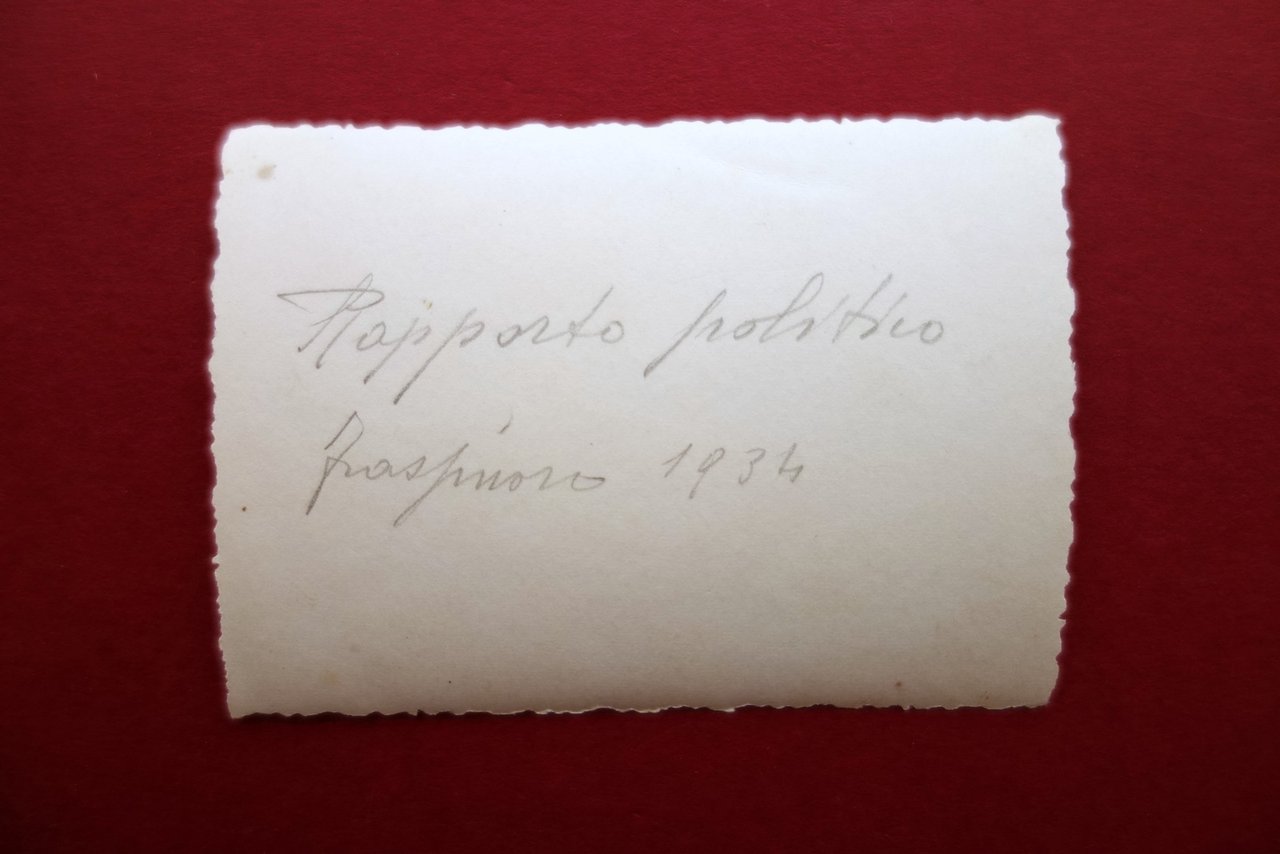 Rapporto politico
Frassinoro 1934